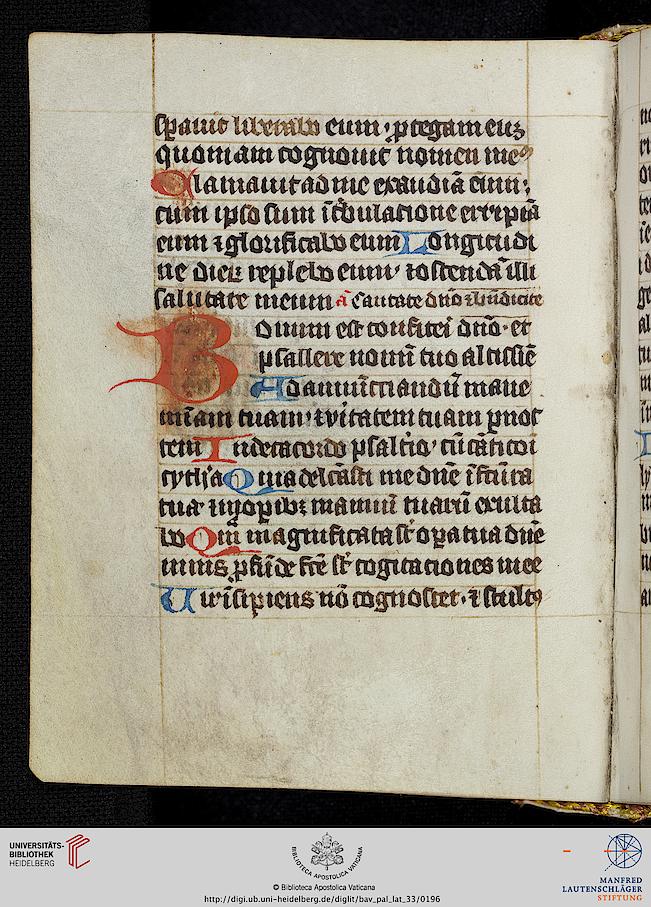 spauit liberabo eum, ꝓtegam euꝫ
quoniam cognouit nomen meꝰ
Clamauit ad me exaudiā eum;
cum ipso sum ī tͥbulatione erripiā
eum ⁊ glorificabo eum Longitudi
ne dieꝝ replebo eum, ⁊ ostendā illi
salutare meum añ Cantate dn̄o ⁊ bn̄dicite
Bonum est confitei dn̄o· et
psallere nomī tuo altissīe
Ad annūciandū mane
mīam tuam, ⁊ vitatem tuam ꝑ noc
tem In decacordo psaltīo, cū cātico ī
cythͣa Quia delcāsti me dn̄e ī fcūra
tua ⁊ ī oꝑibꝫ manuū tuarū exulta
bo Qm̄ magnificata st̄ oꝑa tua dn̄e
nimis ꝓfūde fc̄e st̄ cogitaciones tue
Uir īsipiens nō cognoscet· ⁊ stultꝰ
UNIVERSITÄTS-
BIBLIOTHEK
HEIDELBERG
BIBLIOTECA APOSTOLICA VATICANA
© Biblioteca Apostolica Vaticana
http://digi.ub.uni-heidelberg.de/diglit/bav_pal_lat_33/0196
MANFRED
LAUTENSCHLÄGER
STIFTUNG